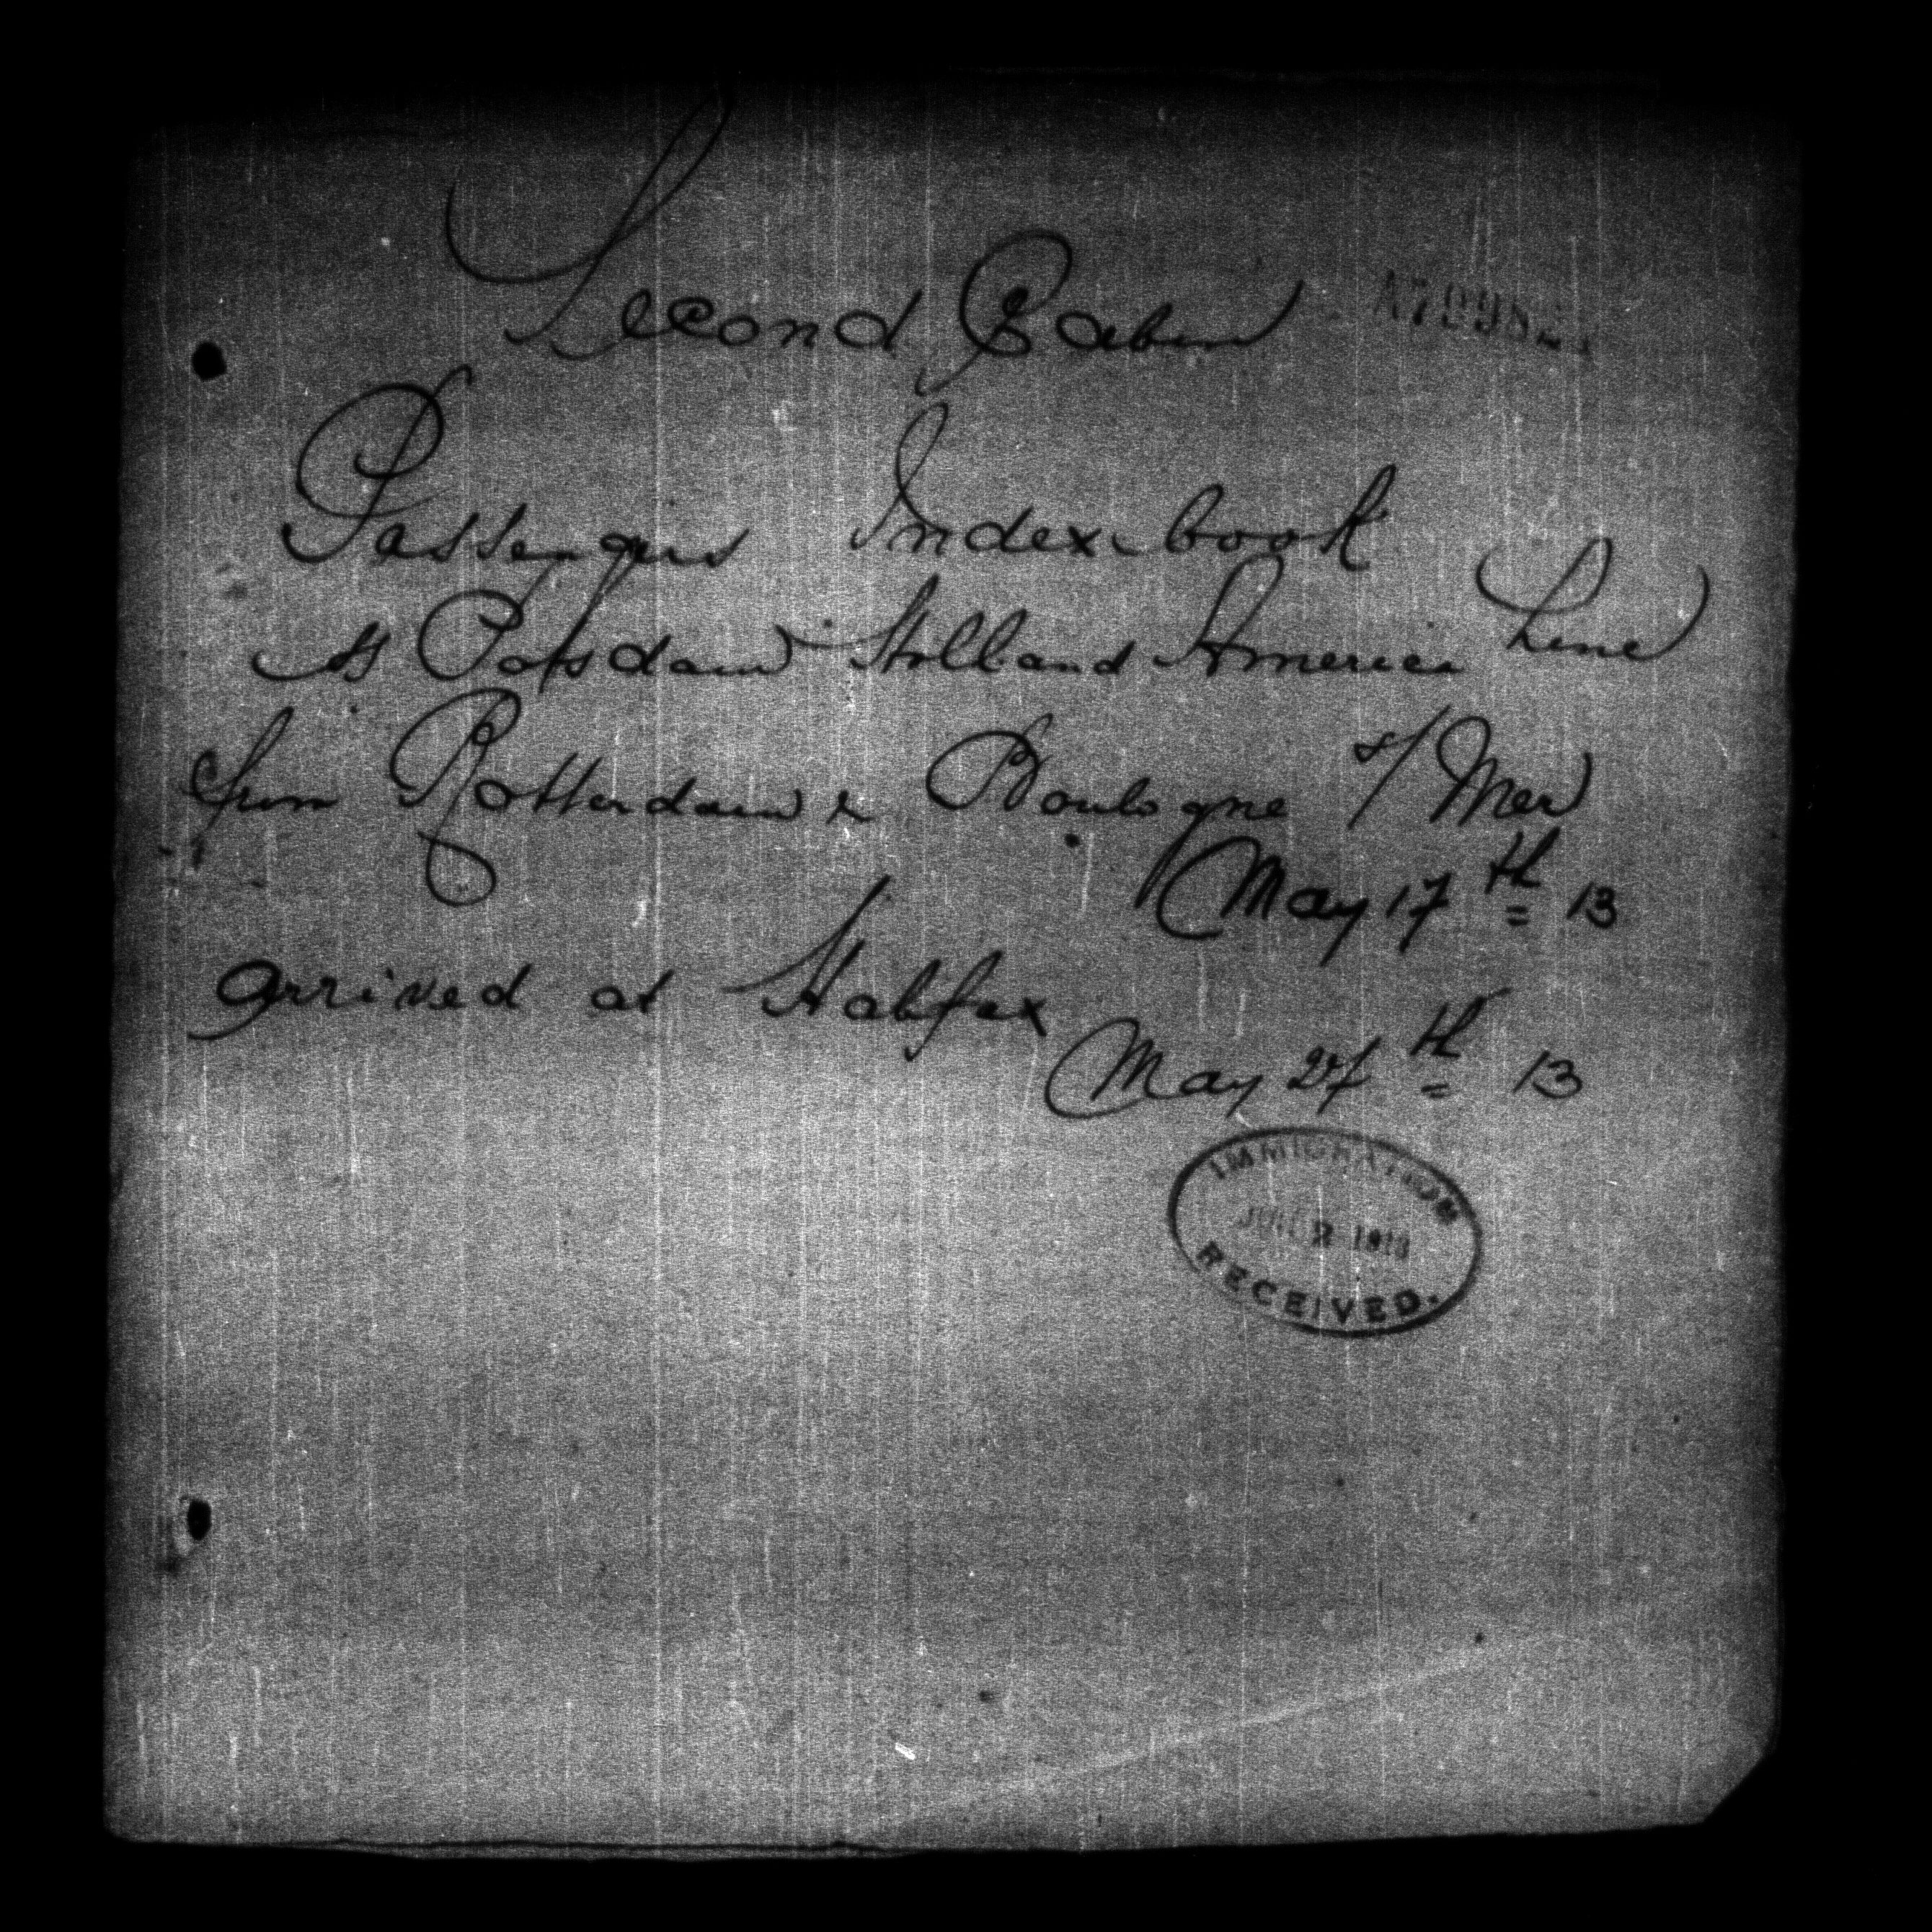 Second Cabin
Passengers Index book
ss Potsdam Holland America Line
from Rotterdam & Boulogne s/ Mer
May 17th 13
arrived at Halifax
May 27th 13
IMMIGRATION
JUN 2 1913
RECEIVED.